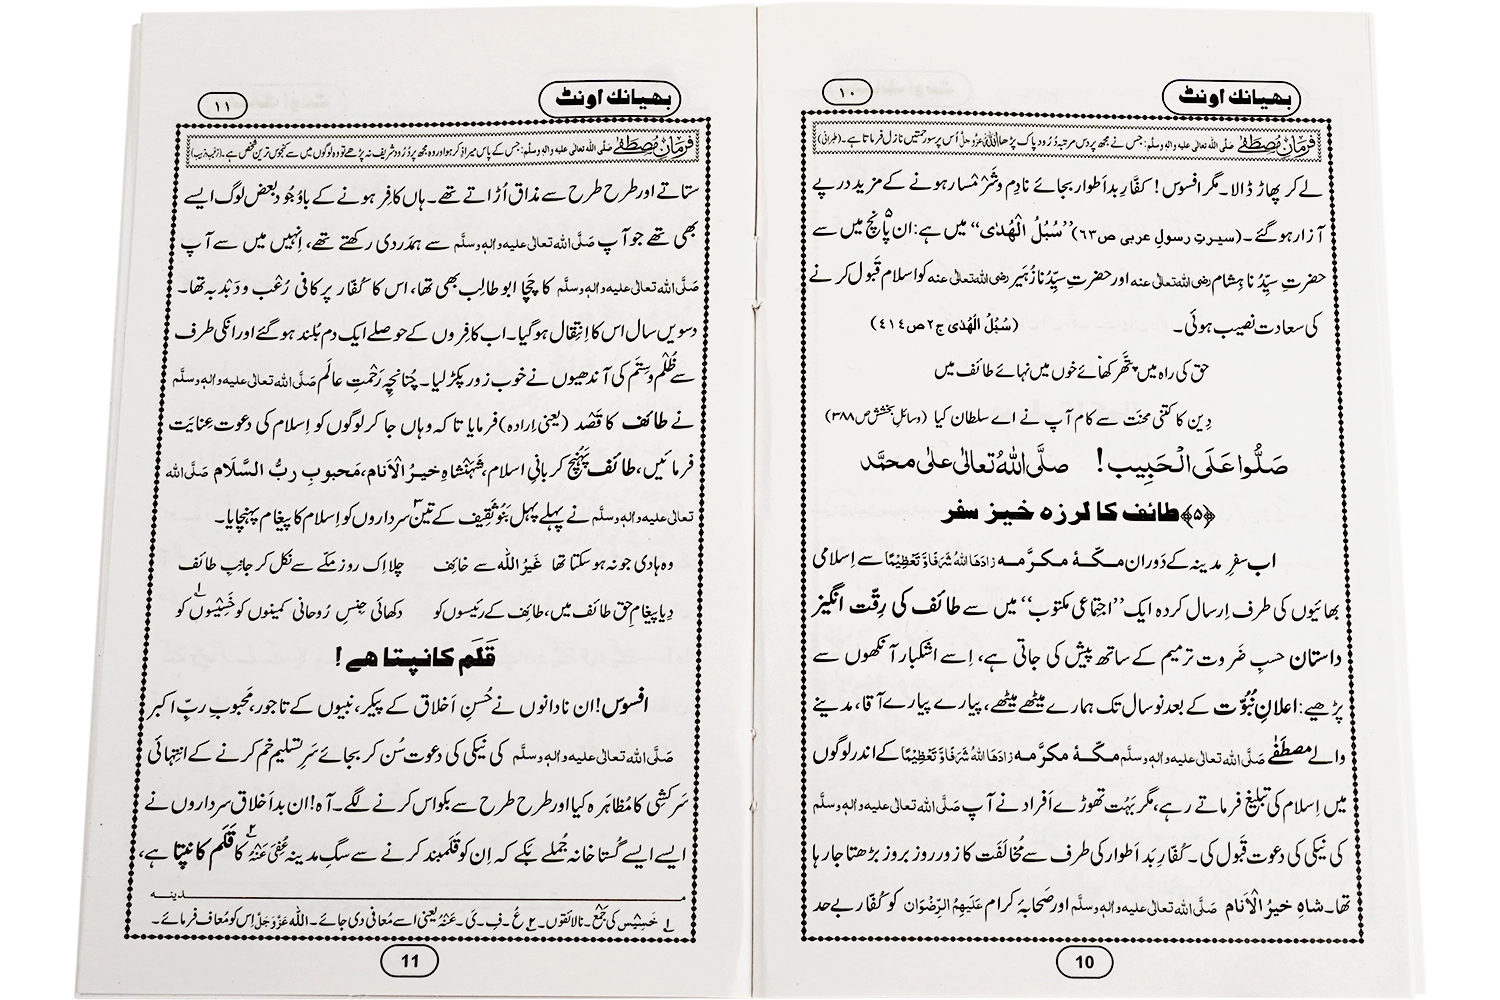 بھیانك اونٹ
١٠
فرمانِ مصطفٰے صلَّی اللہ تعالیٰ علیہ والہٖ وسلَّم: جس نے مجھ پر دس مرتبہ دُرُود پاک پڑھا اللہ عزوجل اُس پر سو رحمتیں نازل فرماتا ہے۔ (طبرانی)
لے کر پھاڑ ڈالا۔ مگر افسوس! کفّارِ بد اَطوار بجائے نادِم و شَرْمْسار ہونے کے مزید درپے
آزار ہو گئے۔ (سیرتِ رسولِ عربی ص٦٣) ’’سُبُلُ الْھُدٰی‘‘ میں ہے: ان پانچ میں سے
حضرتِ سیِّدُنا ہِشام رضی اللہ تعالیٰ عنہ اور حضرتِ سیِّدُنا زُہَیر رضی اللہ تعالیٰ عنہ کو اسلام قَبول کرنے
کی سعادت نصیب ہوئی۔ (سُبُلُ الْھُدٰی ج٢ ص٤١٤)
حق کی راہ میں پتّھر کھائے خوں میں نہائے طائف میں
دِین کا کتنی محنت سے کام آپ نے اے سلطان کیا (وسائلِ بخشش ص٣٨٨)
صَلُّوا عَلَی الْحَبِیب! صلَّی اللہُ تعالٰی علٰی محمَّد
﴿٥﴾ طائف کا لرزہ خیز سفر
اب سفرِ مدینہ کے دَوران مکّۂ مکرَّمہ زادَھَا اللہُ شَرَفًا وَّ تَعْظِیْمًا سے اِسلامی
بھائیوں کی طرف اِرسال کردہ ایک ’’اجتماعی مکتوب‘‘ میں سے طائف کی رِقّت انگیز
داستان حسبِ ضَروت ترمیم کے ساتھ پیش کی جاتی ہے، اِسے اشکبار آنکھوں سے
پڑھیے: اعلانِ نُبُوَّت کے بعد نو سال تک ہمارے میٹھے میٹھے، پیارے پیارے آقا، مدینے
والے مصطفٰے صَلَّی اللہ تعالیٰ علیہ والہٖ وسلَّم مکّۂ مکرَّمہ زادَھَا اللہُ شَرَفًا وَّ تَعْظِیْمًا کے اندر لوگوں
میں اِسلام کی تبلیغ فرماتے رہے، مگر بَہُت تھوڑے اَفراد نے آپ صَلَّی اللہ تعالیٰ علیہ والہٖ وسلَّم
کی نیکی کی دعوت قَبول کی۔ کفّارِ بد اَطوار کی طرف سے مُخالَفَت کا زور روز بروز بڑھتا جا رہا
تھا۔ شاہِ خیرُ الْاَنام صَلَّی اللہ تعالیٰ علیہ والہٖ وسلَّم اور صَحابۂ کرام عَلَیْہِمُ الرِّضْوَان کو کفّار بے حد
10
بھیانك اونٹ
١١
فرمانِ مصطفٰے صلَّی اللہ تعالیٰ علیہ والہٖ وسلَّم: جس کے پاس میرا ذِکر ہو اور وہ مجھ پر دُرُود شریف نہ پڑھے تو وہ لوگوں میں سے کنجوس ترین شخص ہے۔
ستاتے اور طرح طرح سے مذاق اُڑاتے تھے۔ ہاں کافِر ہونے کے باوُجُود بعض لوگ ایسے
بھی تھے جو آپ صَلَّی اللہ تعالیٰ علیہ والہٖ وسلَّم سے ہمدردی رکھتے تھے، اِنہیں میں سے آپ
صَلَّی اللہ تعالیٰ علیہ والہٖ وسلَّم کا چَچا ابو طالِب بھی تھا، اس کا کُفّار پر کافی رُعْب و دَبْدبہ تھا۔
دسویں سال اس کا اِنتِقال ہو گیا۔ اب کافِروں کے حوصلے ایک دم بُلند ہو گئے اور انکی طرف
سے ظُلْم و سِتَم کی آندھیوں نے خوب زور پکڑ لیا۔ چُنانچِہ رَحْمتِ عالَم صَلَّی اللہ تعالیٰ علیہ والہٖ وسلَّم
نے طائف کا قَصْد (یعنی اِرادہ) فرمایا تاکہ وہاں جا کر لوگوں کو اِسلام کی دعوت عِنایَت
فرمائیں، طائف پَہُنْچ کر بانیِ اسلام، شَہَنْشاہِ خیرُ الْاَنام، مَحبوبِ ربُّ السَّلام صَلَّی اللہ
تعالیٰ علیہ والہٖ وسلَّم نے پہلے پہل بَنُو ثَقِیف کے تین سرداروں کو اِسلام کا پیغام پہنچایا۔
وہ ہادی جو نہ ہو سکتا تھا غَیرُ اللہ سے خائف چلا اِک روز مکّے سے نکل کر جانِبِ طائف
دِیا پیغامِ حق طائف میں، طائف کے رئیسوں کو دکھائی جِنسِ رُوحانی کمینوں کو خَسِیْسوں ١ کو
قَلَم کانپتا ھے!
افسوس! ان نادانوں نے حُسنِ اَخلاق کے پیکر، نبیوں کے تاجور، مَحبوبِ ربِّ اکبر
صَلَّی اللہ تعالیٰ علیہ والہٖ وسلَّم کی نیکی کی دعوت سُن کر بجائے سَرِ تسلیم خم کرنے کے اِنتِہائی
سَرکشی کا مُظاہَرہ کیا اور طرح طرح سے بکواس کرنے لگے۔ آہ! ان بد اَخلاق سرداروں نے
ایسے ایسے گُستاخانہ جُملے بکے کہ اِن کو قلمبند کرنے سے سگِ مدینہ عُفِیَ عَنْہُ ٢ کا قَلَم کانپتا ہے،
مدینہ
١ خَسِیْس کی جَمْع۔ نالائقوں۔ ٢ عُ۔فِ۔یَ۔عَنْہُ یعنی اسے مُعافی دی جائے۔ اللہ عَزَّوَجَلَّ اِس کو مُعاف فرمائے۔
11